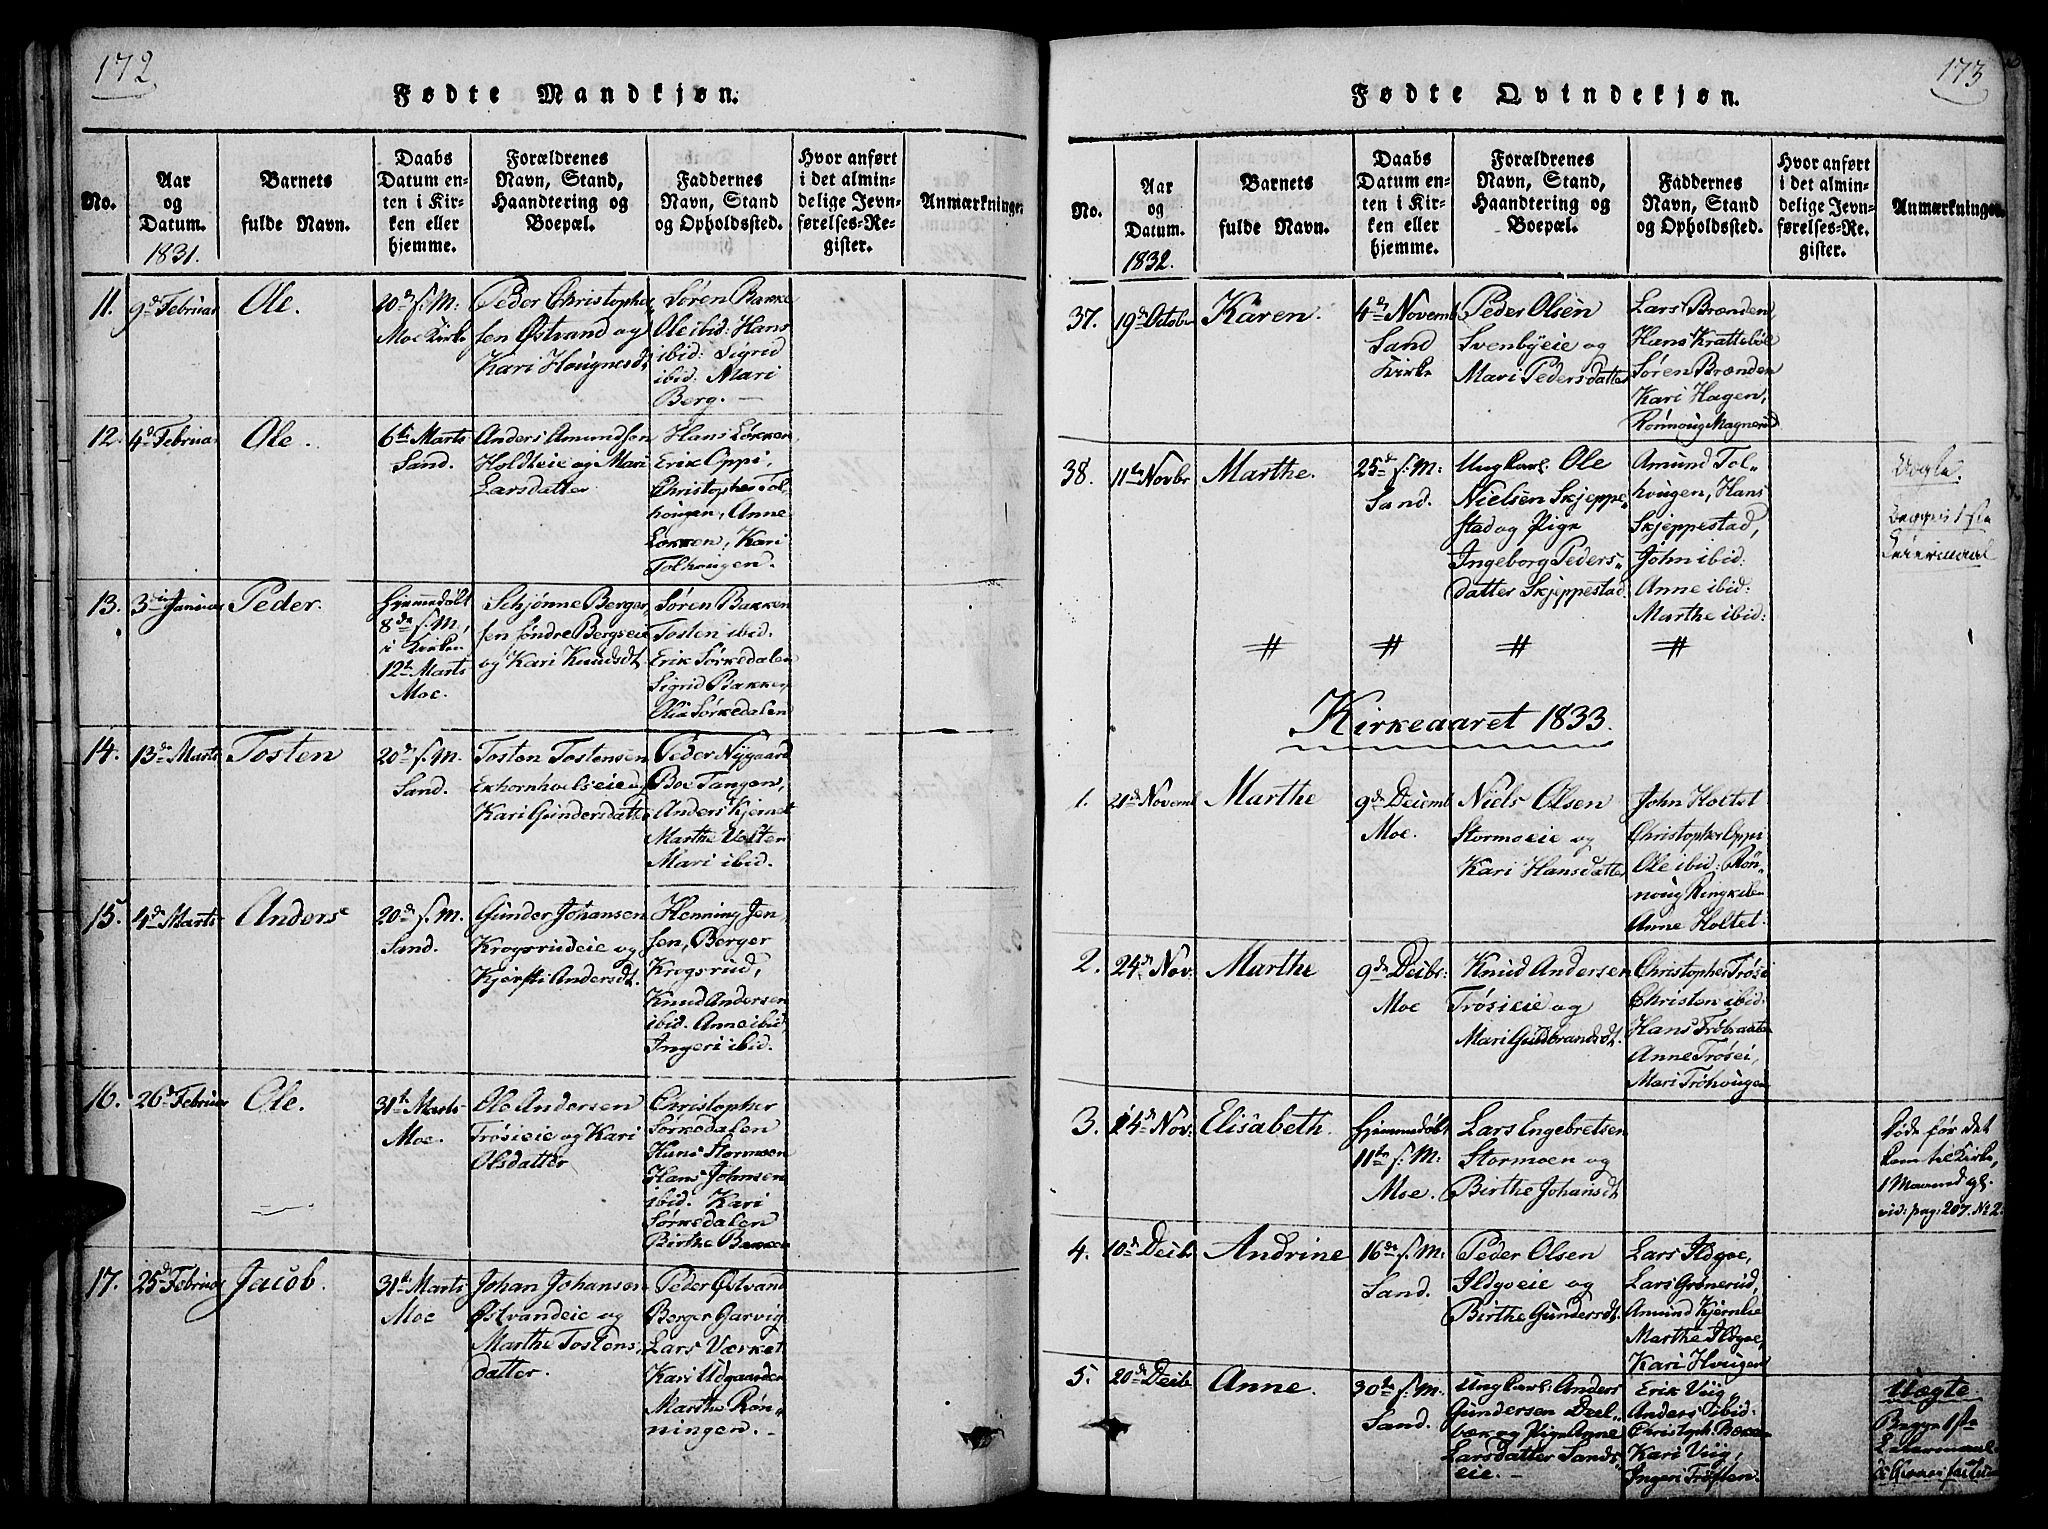 172
Fødte Mandkjøn.
No.
Aar
og
Datum.
1831.
Barnets
fulde Navn.
Daabs
Datum en-
ten i Kir-
ken eller
hjemme.
Forældrenes
Navn, Stand,
Haandtering og
Boepæl.
Faddernes
Navn, Stand
og Opholdssted.
Hvor anført
i det almin-
delige Jevn-
førelses-Re-
gister.
Anmærkninger
11.
9de Februar
Ole.
20de s: M:
Moe Kirke
Peder Christopher
sen Østvand og
Kari Hougnesdt
Søren Bakke
Ole ibid: Hans
ibid: Sigrid
ibid: Mari
Berg. —
12.
4de Februar
Ole.
6te Marts
Sand.
Anders Amundsen
Holdteie og Mari
Larsdatter
Hans Løkken
Erik Oppi,
Christopher Tol-
hougen, Anne
Løkken, Kari
Tolhougen.
13.
3die Januar
Peder.
Hjemmedøbt
8de s. M.
i Kirken
12te Marts
Moe.
Schjønne Berger
sen søndre Bergseie
og Kari Knudsdt
Søren Bakken
Tosten ibid.
Erik Sørkedalen
Sigrid Bakken
Olia Sørkedalen
14.
13de Marts
Tosten
20de s. M.
Sand.
Tosten Tostensen
Ekhornholseie og
Kari Gundersdatter
Peder Nygaard
Boe Tangen,
Anders Kjernet
Marthe Volten
Mari ibid.
15.
4de Marts
Anders
20de s. M.
Sand.
Gunder Johansen
Krogsrudeie og
Kjersti Andersdt.
Henning Jen,
sen, Berger
Krogsrud,
Knud Andersen
ibid. Anne ibid
Ingeri ibid.
16.
26de Februar
Ole.
31te Marts
Moe.
Ole Andersen
Trøsieie og Kari
Olsdatter
Christopher
Sørkedalen
Hans Stormoen
Hans Johnsen
ibid. Kari
Sørkedalen
Birthe Bakken
17.
25de Februar
Jacob.
31te Marts
Moe
Johan Johansen
Østvandeie og
Marthe Tostens,
datter.
Peder Østvand
Berger Garvig
Lars Værket
Kari Udgaarden
Marthe Røn-
ningen. —
173
Fødte Qvindekjøn.
No.
Aar
og
Datum.
1832.
Barnets
fulde Navn.
Daabs
Datum en-
ten i Kir-
ken eller
hjemme.
Forældrenes
Navn, Stand,
Haandtering og
Boepæl.
Faddernes
Navn, Stand
og Opholdssted.
Hvor anført
i det almin-
delige Jevn-
førelses-Re-
gister.
Anmærkninger.
37.
19de October
Karen.
4de Novemb
Sand
Kirke
Peder Olsen
Svenbyeie og
Mari Pedersdatter
Lars Brænden
Hans Krattebøl
Søren Brænden
Kari Hagen,
Rønnoug Magnerud
38.
11te Novbr
Marthe.
25de s: M:
Sand.
Ungkarl: Ole
Nielsen Skjeppe-
stad og Pige
Ingeborg Peders-
datter Skjeppestad
Amund Tol-
hougen, Hans
Skjeppestad,
John ibid:
Anne ibid:
Marthe ibid:
Uægte.
Begges 1ste
Leiermaal
# # # #
Kirkeaaret 1833.
1.
21de Novemb
Marthe
9de Decemb
Moe.
Niels Olsen
Stormoeie og
Kari Hansdatter
John Holtet
Christopher Oppi
Ole ibid: Røn-
noug Ringkilen
Anne Holtet.
2.
24de Nov:
Marthe
9de Decbr:
Moe
Knud Andersen
Trøsieie og
Mari Guldbrandsdt.
Christopher Trøsei
Christen ibid:
Hans Trøbraaten
Anne Trøsei,
Mari Trøhougen
3.
24de Nov:
Elisabeth.
Hjemmedøbt
11te s: M:
Moe.
Lars Engebretsen
Stormoen og
Birthe Johansdt
Døde før det
kom til Kirke,
1 Maaned gl.
vid: pag: 207. No 2.
4.
10de Decbr
Andrine
16de s. M:
Sand.
Peder Olsen
Ildgoeie og
Birthe Gundersdt.
Lars Ildgoe,
Lars Grønerud,
Amund Kjernlie
Marthe Ildgoe,
Kari Hougen
5.
20de Decbr
Anne.
30te s: M:
Sand.
Ungkarl: Anders
Gundersen Deel-
bæk og Pige Anne
Larsdatter Sands-
eie. —
Erik Viig,
Anders ibid:
Christoph. Bækken
Kari Viig,
Ingeri Trøften.
Uægte.
Begge 1ste
Leiermaal